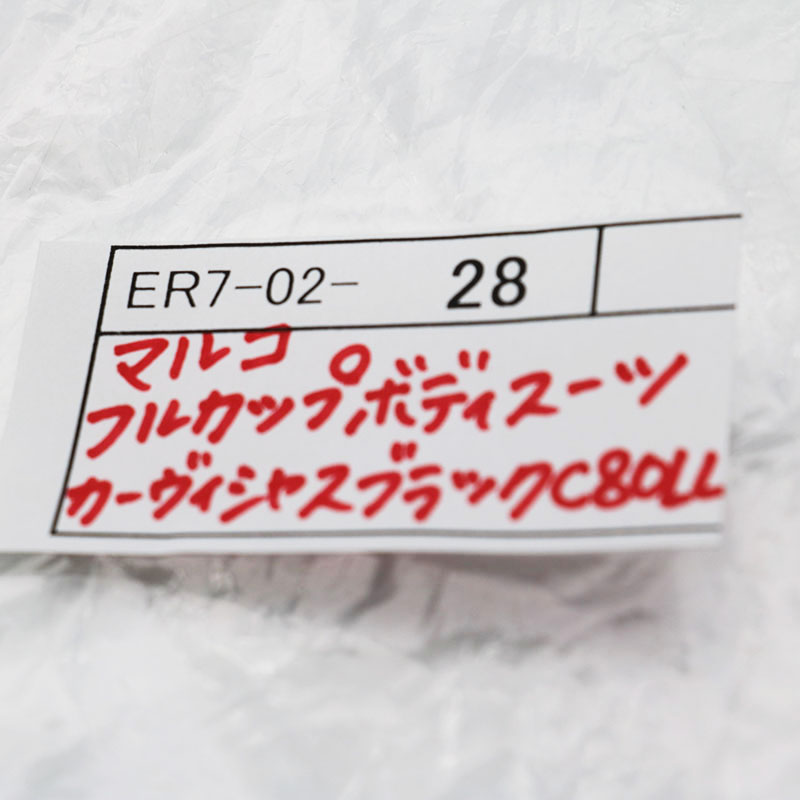 ER7-02- 28
マルコ
フルカップ,ボディスーツ
カーヴィシャスブラックC80LL